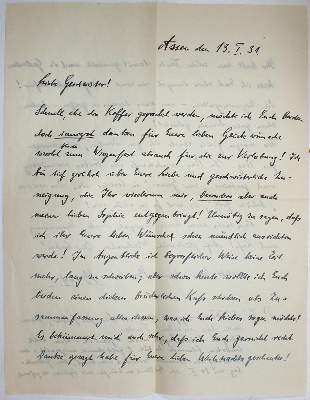 Assen den 13. I. 31
Liebe Geschwister!
Schnell, ehe die Koffer gepackt werden, möchte ich Euch beiden
doch danken für Eure lieben Glückwünsche
sowohl zum Wiegenfest als auch für die zur Verlobung! Ich
bin tief gerührt über Eure Liebe und geschwisterliche Zu-
neigung, die Ihr wiederum mir, besonders aber auch
meiner lieben Sophie entgegenbringt! Unnötig zu sagen, daß
ich ihr Eure lieben Wünsche schon mündlich ausrichten
werde! Im Augenblicke ist begreiflicher Weise keine Zeit
mehr, lang zu schreiben; aber schon heute wollte ich Euch
beiden einen dicken brüderlichen Kuß schicken als Zu-
sammenfassung alles dessen, was ich Euch beiden sagen möchte!
Es bekümmert mich auch sehr, daß ich Euch garnicht recht
Danke gesagt habe für Eure lieben Weihnachtsgeschenke!